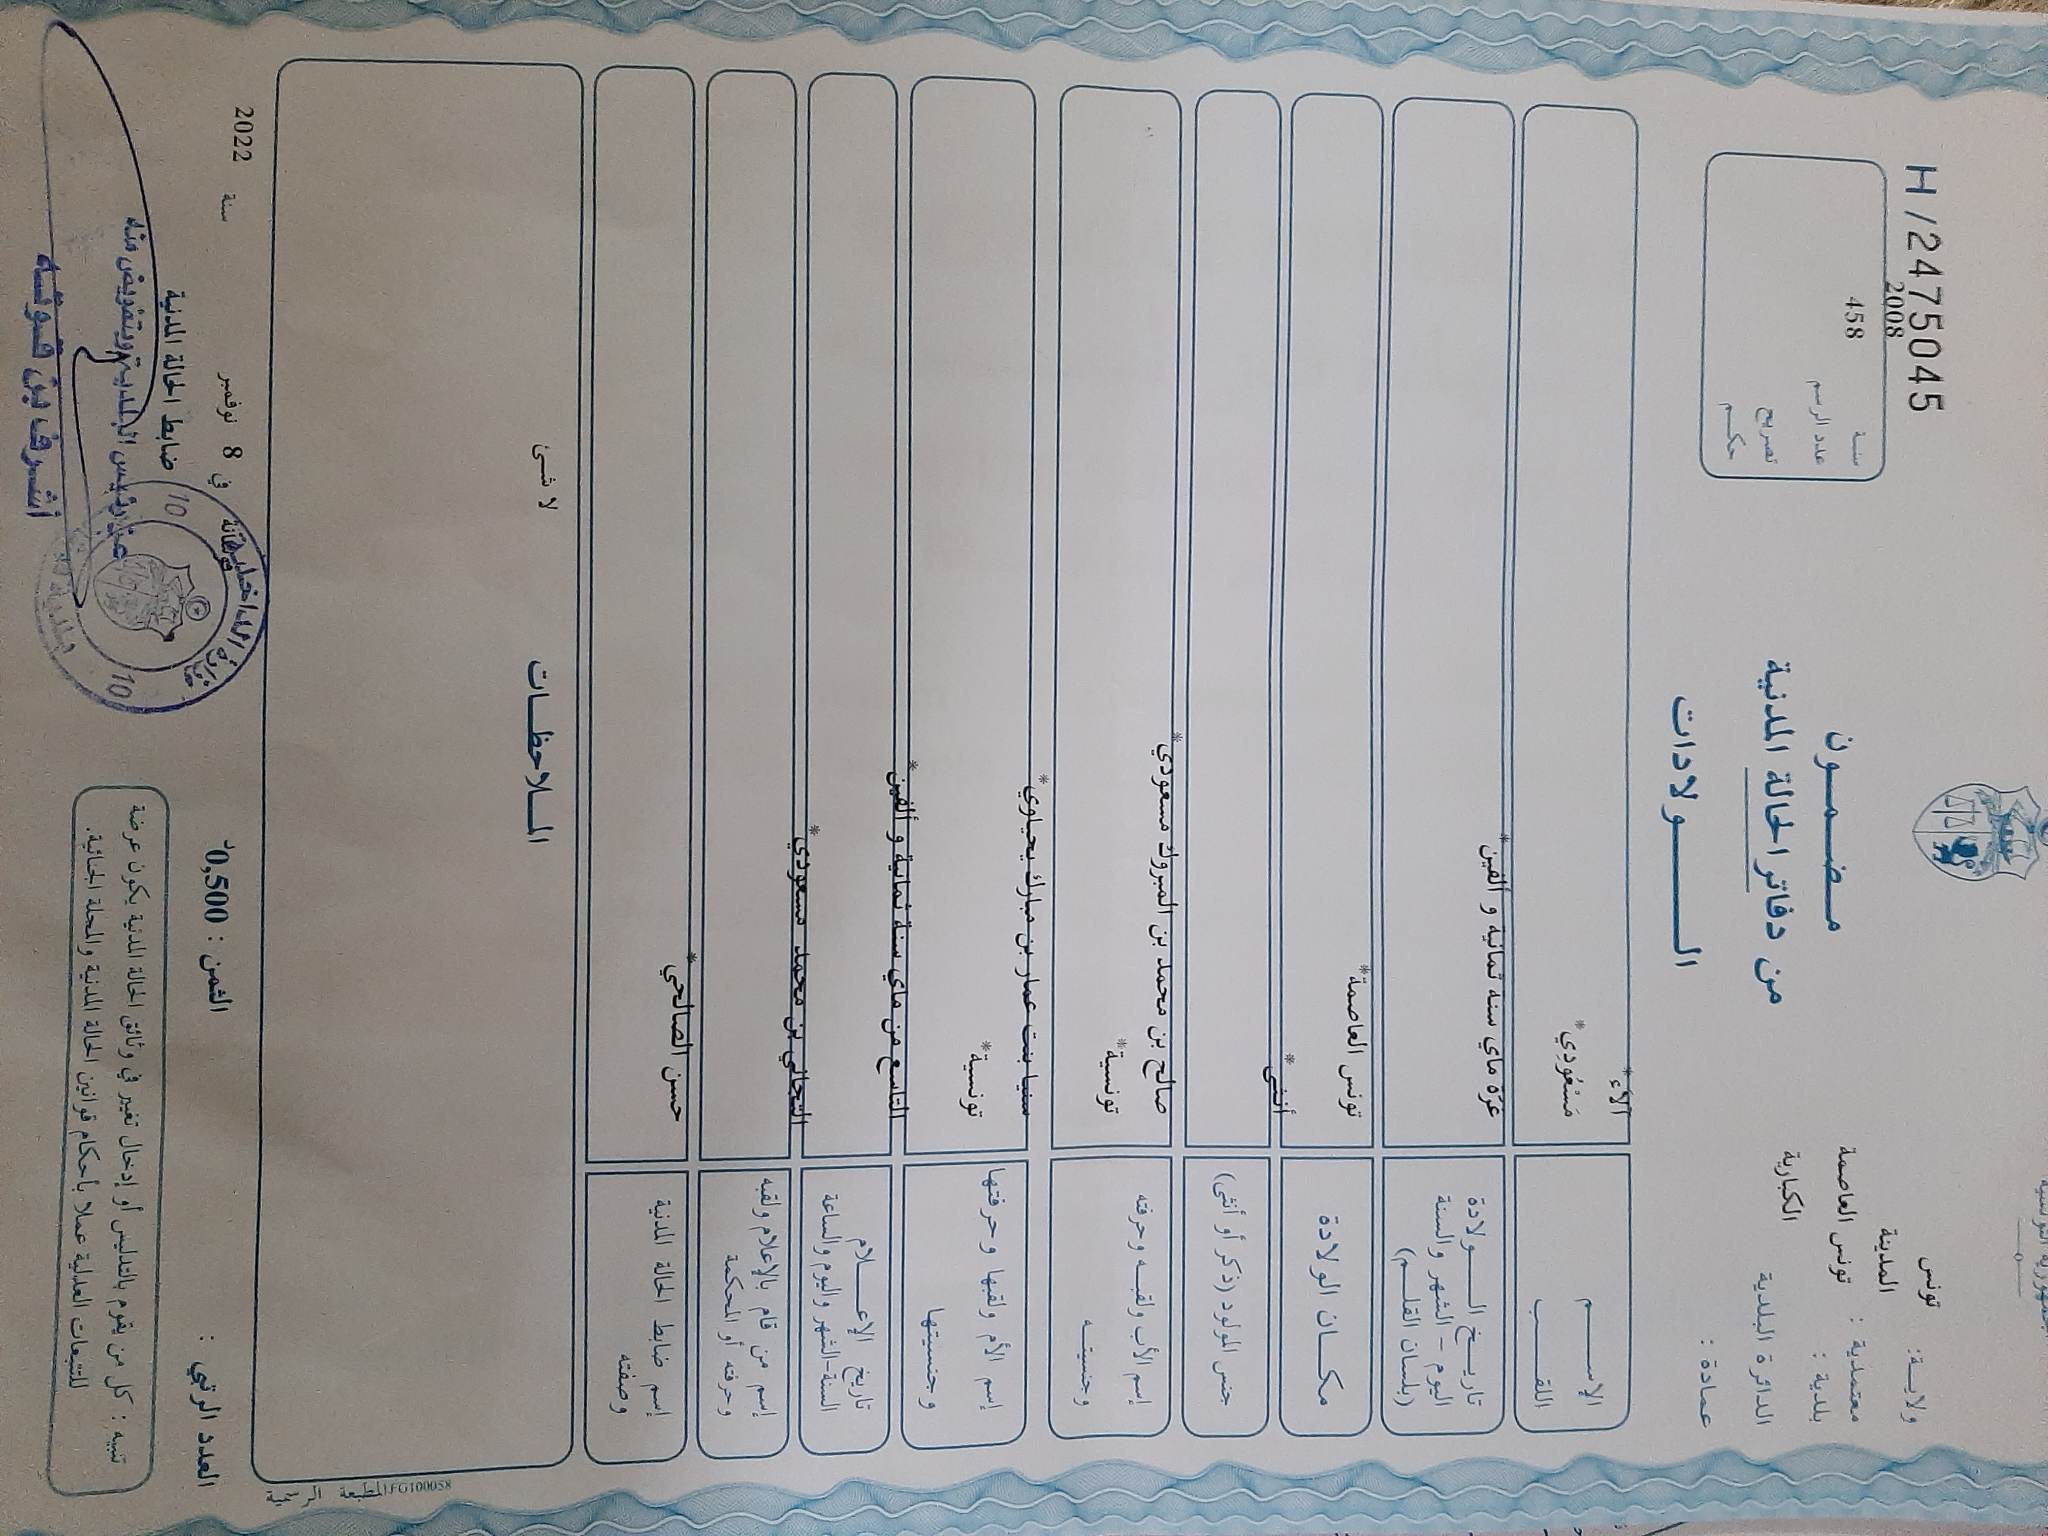 الجمهورية التونسية
ولايـــة: تونس
المدينة
معتمدية :
بلدية : تونس العاصمة
الدائرة البلدية الكبارية
عمادة :
H/24750045
2008
سنـة
458
عدد الرسم
تصريح
حكـــم
مـــضـــمـــون
من دفاتر الحالة المدنية
الـــــولادات
الإســـــم
اللقـــــب
ألاء*
مَسْعُودِي*
تاريـــخ الـــــولادة
اليوم – الشهر والسنة
(بلسان القلـــم)
غرّة ماي سنة ثمانية و الفين*
مكـــان الولادة
تونس العاصمة*
جنس المولود (ذكر أو أنثى)
أنثى*
إسم الأب ولقبـــه وحرفته
وجنسيتـــه
صالح بن محمد بن المبروك مسعودي*
تونسية*
إسم الأم ولقبها وحرفتها
وجنسيتها
سنيا بنت عمار بن مبارك يحياوي*
تونسية*
تاريخ الإعـــــلام
السنة-الشهر واليوم والساعة
التاسع من ماي سنة ثمانية و ألفين*
إسم من قام بالإعلام ولقبه
وحرفته أو المحكمة
التجاني بن محمد مسعودي*
إسم ضابط الحالة المدنية
وصفته
حسن الصالحي*
المـــلاحظـــات
لا شئ
المطبعة الرسمية FG100058
العدد الرتبي :
الثمن : 0,500د
في 8 نوفمبر سنة 2022
ضابط الحالة المدنية
عن رئيس البلدية وبتفويض منه
أشرف بن قوتـــه
وزارة الداخلية
10
10
تنبيه : كل من يقوم بالتدليس أو إدخال تغيير في وثائق الحالة المدنية يكون عرضة
للتتبعات العدلية عملا بأحكام قوانين الحالة المدنية والمجلة الجنائية.